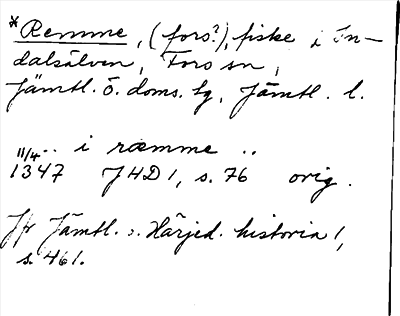 *Remme, (fors?), fiske i In-
dalsälven, Fors sn,
Jämtl. ö. doms. sg, Jämtl. l.
.. i ræmme ..
11/4 1347 JHD 1, s. 76 orig.
Jfr Jämtl. o. Härjed. historia 1,
s. 461.